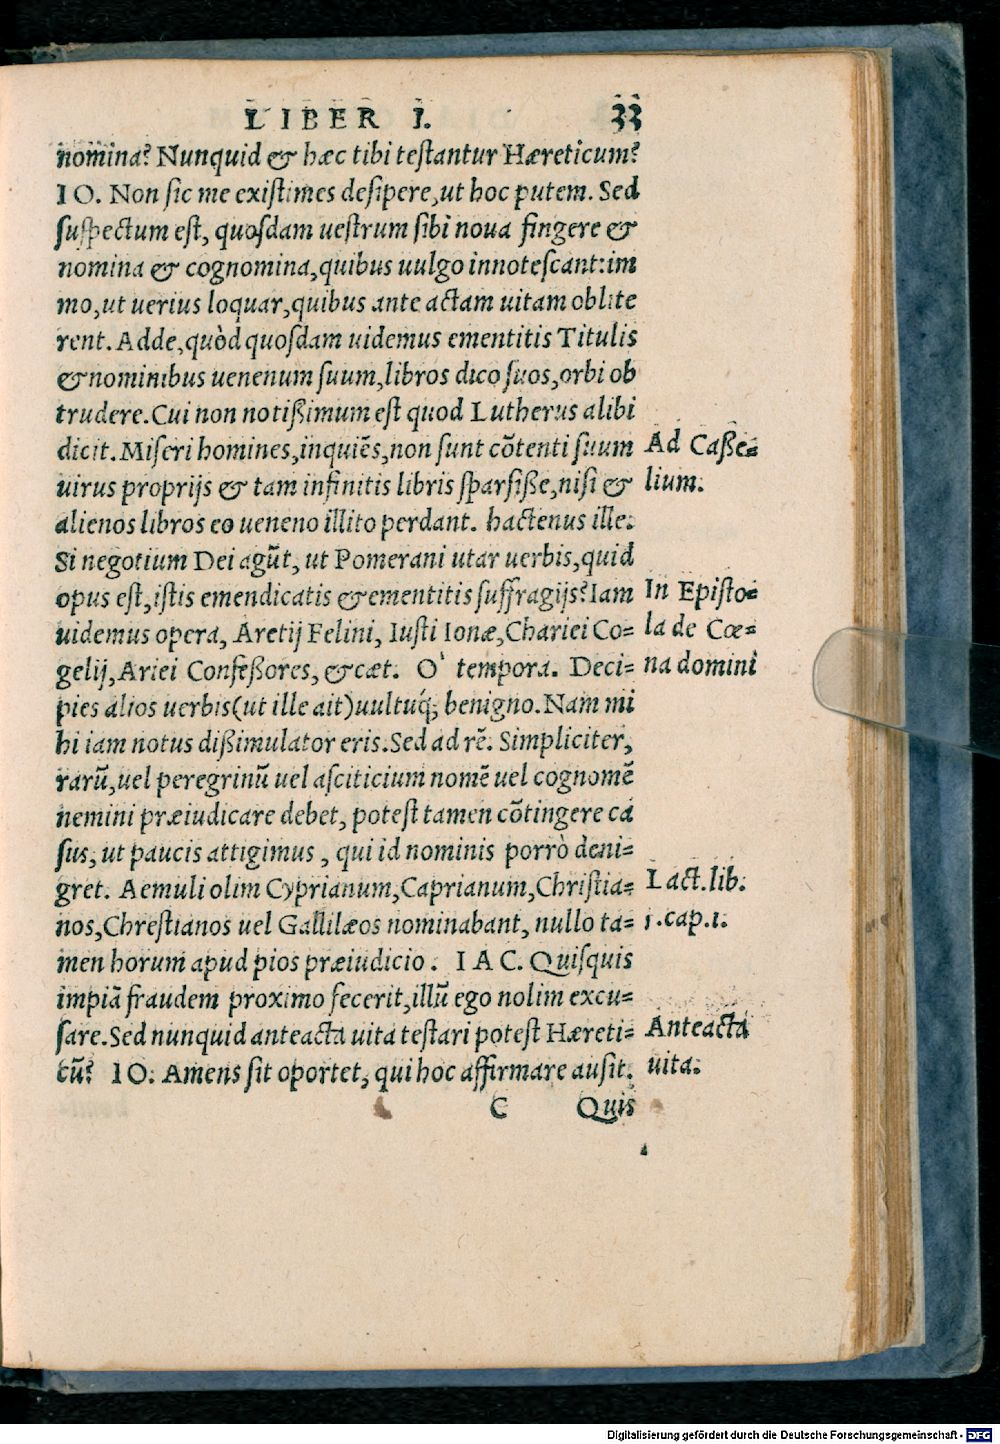 LIBER I. 33
nomina? Nunquid & hæc tibi testantur Hæreticum?
IO. Non sic me existimes desipere, ut hoc putem. Sed
suspectum est, quosdam uestrum sibi noua fingere &
nomina & cognomina, quibus uulgo innotescant: im
mo, ut uerius loquar, quibus ante actam uitam oblite
rent. Adde, quòd quosdam uidemus ementitis Titulis
& nominibus uenenum suum, libros dico suos, orbi ob
trudere. Cui non notißimum est quod Lutherus alibi
dicit. Miseri homines, inquiẽs, non sunt cõtenti suum
Ad Caße=
uirus proprijs & tam infinitis libris sparsiße, nisi &
lium.
alienos libros eo ueneno illito perdant. hactenus ille.
Si negotium Dei agũt, ut Pomerani utar uerbis, quid
opus est, istis emendicatis & ementitis suffragijs? Iam
In Episto=
uidemus opera, Aretij Felini, Iusti Ionæ, Chariei Co=
la de Cœ=
gelij, Ariei Confeßores, & cæt. O' tempora. Deci=
na domini
pies alios uerbis (ut ille ait) uultuq́; benigno. Nam mi
hi iam notus dißimulator eris. Sed ad rẽ. Simpliciter,
rarũ, uel peregrinũ uel asciticium nomẽ uel cognomẽ
nemini præiudicare debet, potest tamen cõtingere ca
sus, ut paucis attigimus, qui id nominis porrò deni=
gret. Aemuli olim Cyprianum, Caprianum, Christia=
Lact. lib.
nos, Chrestianos uel Gallilæos nominabant, nullo ta=
1. cap. 1.
men horum apud pios præiudicio. IAC. Quisquis
impiã fraudem proximo fecerit, illũ ego nolim excu=
sare. Sed nunquid anteacta uita testari potest Hæreti=
Anteacta
cũ? IO. Amens sit oportet, qui hoc affirmare ausit.
uita.
C Quis
Digitalisierung gefördert durch die Deutsche Forschungsgemeinschaft - DFG